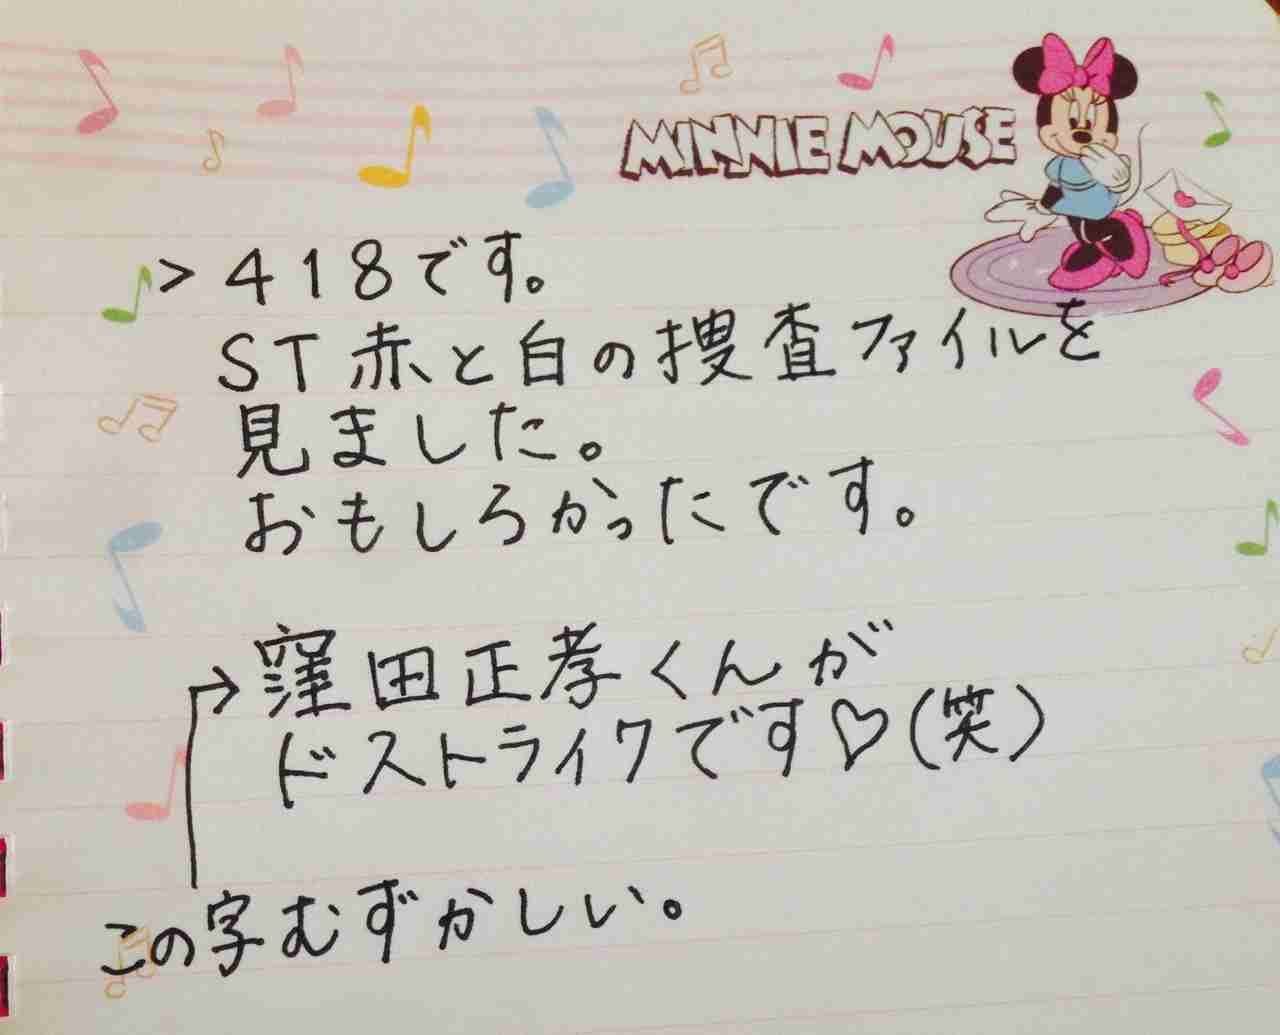 MINNIE MOUSE
>418です。
ST赤と白の捜査ファイルを
見ました。
おもしろかったです。
→窪田正孝くんが
ドストライクです♡(笑)
この字むずかしい。